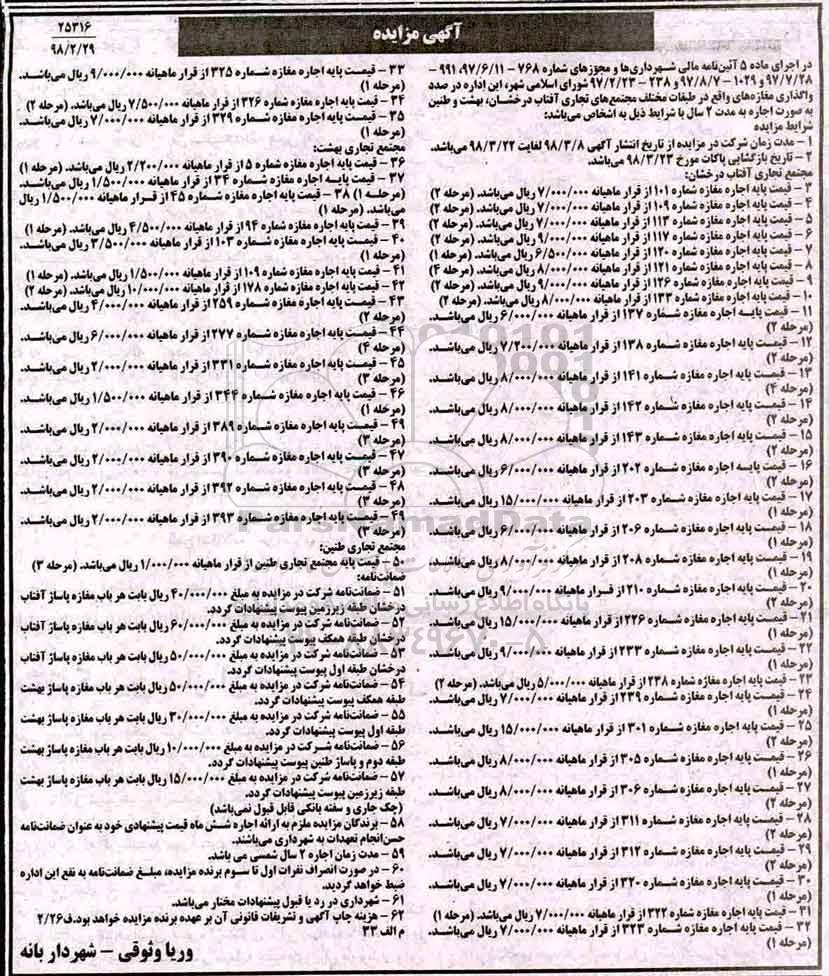 آگهی مزایده
۲۵۳۱۶
۹۸/۲/۲۹
در اجرای ماده ۵ آئین‌نامه مالی شهرداری‌ها و مجوزهای شماره ۷۶۸ – ۹۷/۶/۱۱، ۹۹۱ –
۹۷/۷/۲۸ و ۱۰۲۹ – ۹۷/۸/۷ و ۲۳۸ – ۹۷/۲/۲۳ شورای اسلامی شهر، این اداره در صدد
واگذاری مغازه‌های واقع در طبقات مختلف مجتمع‌های تجاری آفتاب درخشان، بهشت و طنین
به صورت اجاره به مدت ۲ سال با شرایط ذیل به اشخاص می‌باشد:
شرایط مزایده
۱ – مدت زمان شرکت در مزایده از تاریخ انتشار آگهی ۹۸/۳/۸ لغایت ۹۸/۳/۲۲ می‌باشد.
۲ – تاریخ بازگشایی پاکات مورخ ۹۸/۳/۲۳ می‌باشد.
مجتمع تجاری آفتاب درخشان:
۳ – قیمت پایه اجاره مغازه شماره ۱۰۱ از قرار ماهیانه ۷/۰۰۰/۰۰۰ ریال می‌باشد. (مرحله ۲)
۴ – قیمت پایه اجاره مغازه شماره ۱۰۹ از قرار ماهیانه ۷/۰۰۰/۰۰۰ ریال می‌باشد. (مرحله ۲)
۵ – قیمت پایه اجاره مغازه شماره ۱۱۳ از قرار ماهیانه ۷/۰۰۰/۰۰۰ ریال می‌باشد. (مرحله ۲)
۶ – قیمت پایه اجاره مغازه شماره ۱۱۷ از قرار ماهیانه ۹/۰۰۰/۰۰۰ ریال می‌باشد. (مرحله ۲)
۷ – قیمت پایه اجاره مغازه شماره ۱۲۰ از قرار ماهیانه ۶/۵۰۰/۰۰۰ ریال می‌باشد. (مرحله ۱)
۸ – قیمت پایه اجاره مغازه شماره ۱۲۱ از قرار ماهیانه ۸/۰۰۰/۰۰۰ ریال می‌باشد. (مرحله ۴)
۹ – قیمت پایه اجاره مغازه شماره ۱۲۶ از قرار ماهیانه ۹/۰۰۰/۰۰۰ ریال می‌باشد. (مرحله ۲)
۱۰ – قیمت پایه اجاره مغازه شماره ۱۳۳ از قرار ماهیانه ۸/۰۰۰/۰۰۰ ریال می‌باشد. (مرحله ۲)
۱۱ – قیمت پایه اجاره مغازه شماره ۱۳۷ از قرار ماهیانه ۶/۰۰۰/۰۰۰ ریال می‌باشد.
(مرحله ۲)
۱۲ – قیمت پایه اجاره مغازه شماره ۱۳۸ از قرار ماهیانه ۷/۲۰۰/۰۰۰ ریال می‌باشد.
(مرحله ۲)
۱۳ – قیمت پایه اجاره مغازه شماره ۱۴۱ از قرار ماهیانه ۸/۰۰۰/۰۰۰ ریال می‌باشد.
(مرحله ۴)
۱۴ – قیمت پایه اجاره مغازه شماره ۱۴۲ از قرار ماهیانه ۸/۰۰۰/۰۰۰ ریال می‌باشد.
(مرحله ۲)
۱۵ – قیمت پایه اجاره مغازه شماره ۱۴۳ از قرار ماهیانه ۸/۰۰۰/۰۰۰ ریال می‌باشد.
(مرحله ۲)
۱۶ – قیمت پایه اجاره مغازه شماره ۲۰۲ از قرار ماهیانه ۶/۰۰۰/۰۰۰ ریال می‌باشد.
(مرحله ۲)
۱۷ – قیمت پایه اجاره مغازه شماره ۲۰۳ از قرار ماهیانه ۱۵/۰۰۰/۰۰۰ ریال می‌باشد.
(مرحله ۱)
۱۸ – قیمت پایه اجاره مغازه شماره ۲۰۶ از قرار ماهیانه ۶/۰۰۰/۰۰۰ ریال می‌باشد.
(مرحله ۱)
۱۹ – قیمت پایه اجاره مغازه شماره ۲۰۸ از قرار ماهیانه ۸/۰۰۰/۰۰۰ ریال می‌باشد.
(مرحله ۱)
۲۰ – قیمت پایه اجاره مغازه شماره ۲۱۰ از قرار ماهیانه ۹/۰۰۰/۰۰۰ ریال می‌باشد.
(مرحله ۲)
۲۱ – قیمت پایه اجاره مغازه شماره ۲۲۶ از قرار ماهیانه ۱۵/۰۰۰/۰۰۰ ریال می‌باشد.
(مرحله ۱)
۲۲ – قیمت پایه اجاره مغازه شماره ۲۳۳ از قرار ماهیانه ۹/۰۰۰/۰۰۰ ریال می‌باشد.
(مرحله ۱)
۲۳ – قیمت پایه اجاره مغازه شماره ۲۳۸ از قرار ماهیانه ۵/۰۰۰/۰۰۰ ریال می‌باشد. (مرحله ۲)
۲۴ – قیمت پایه اجاره مغازه شماره ۲۳۹ از قرار ماهیانه ۷/۰۰۰/۰۰۰ ریال می‌باشد.
(مرحله ۱)
۲۵ – قیمت پایه اجاره مغازه شماره ۳۰۱ از قرار ماهیانه ۱۵/۰۰۰/۰۰۰ ریال می‌باشد.
(مرحله ۲)
۲۶ – قیمت پایه اجاره مغازه شماره ۳۰۵ از قرار ماهیانه ۸/۰۰۰/۰۰۰ ریال می‌باشد.
(مرحله ۱)
۲۷ – قیمت پایه اجاره مغازه شماره ۳۰۶ از قرار ماهیانه ۸/۰۰۰/۰۰۰ ریال می‌باشد.
(مرحله ۲)
۲۸ – قیمت پایه اجاره مغازه شماره ۳۱۱ از قرار ماهیانه ۷/۰۰۰/۰۰۰ ریال می‌باشد.
(مرحله ۲)
۲۹ – قیمت پایه اجاره مغازه شماره ۳۱۲ از قرار ماهیانه ۷/۰۰۰/۰۰۰ ریال می‌باشد.
(مرحله ۲)
۳۰ – قیمت پایه اجاره مغازه شماره ۳۲۰ از قرار ماهیانه ۷/۰۰۰/۰۰۰ ریال می‌باشد.
(مرحله ۱)
۳۱ – قیمت پایه اجاره مغازه شماره ۳۲۲ از قرار ماهیانه ۷/۰۰۰/۰۰۰ ریال می‌باشد. (مرحله ۱)
۳۲ – قیمت پایه اجاره مغازه شماره ۳۲۳ از قرار ماهیانه ۷/۰۰۰/۰۰۰ ریال می‌باشد.
(مرحله ۱)
۳۳ – قیمت پایه اجاره مغازه شماره ۳۲۵ از قرار ماهیانه ۹/۰۰۰/۰۰۰ ریال می‌باشد.
(مرحله ۱)
۳۴ – قیمت پایه اجاره مغازه شماره ۳۲۶ از قرار ماهیانه ۷/۵۰۰/۰۰۰ ریال می‌باشد. (مرحله ۲)
۳۵ – قیمت پایه اجاره مغازه شماره ۳۲۹ از قرار ماهیانه ۷/۰۰۰/۰۰۰ ریال می‌باشد.
(مرحله ۱)
مجتمع تجاری بهشت:
۳۶ – قیمت پایه اجاره مغازه شماره ۵ از قرار ماهیانه ۲/۲۰۰/۰۰۰ ریال می‌باشد. (مرحله ۱)
۳۷ – قیمت پایه اجاره مغازه شماره ۳۴ از قرار ماهیانه ۱/۵۰۰/۰۰۰ ریال می‌باشد.
(مرحله ۱) ۳۸ – قیمت پایه اجاره مغازه شماره ۴۵ از قرار ماهیانه ۱/۵۰۰/۰۰۰ ریال
می‌باشد. (مرحله ۱)
۳۹ – قیمت پایه اجاره مغازه شماره ۹۴ از قرار ماهیانه ۴/۵۰۰/۰۰۰ ریال می‌باشد. (مرحله ۱)
۴۰ – قیمت پایه اجاره مغازه شماره ۱۰۳ از قرار ماهیانه ۳/۵۰۰/۰۰۰ ریال می‌باشد.
(مرحله ۱)
۴۱ – قیمت پایه اجاره مغازه شماره ۱۰۹ از قرار ماهیانه ۱/۵۰۰/۰۰۰ ریال می‌باشد. (مرحله ۱)
۴۲ – قیمت پایه اجاره مغازه شماره ۱۷۸ از قرار ماهیانه ۱۰/۰۰۰/۰۰۰ ریال می‌باشد. (مرحله ۲)
۴۳ – قیمت پایه اجاره مغازه شماره ۲۵۹ از قرار ماهیانه ۴/۰۰۰/۰۰۰ ریال می‌باشد.
(مرحله ۲)
۴۴ – قیمت پایه اجاره مغازه شماره ۲۷۷ از قرار ماهیانه ۶/۰۰۰/۰۰۰ ریال می‌باشد.
(مرحله ۴)
۴۵ – قیمت پایه اجاره مغازه شماره ۳۳۱ از قرار ماهیانه ۲/۰۰۰/۰۰۰ ریال می‌باشد.
(مرحله ۳)
۴۶ – قیمت پایه اجاره مغازه شماره ۳۴۴ از قرار ماهیانه ۱/۵۰۰/۰۰۰ ریال می‌باشد.
(مرحله ۱)
۴۹ – قیمت پایه اجاره مغازه شماره ۳۸۹ از قرار ماهیانه ۲/۰۰۰/۰۰۰ ریال می‌باشد.
(مرحله ۳)
۴۷ – قیمت پایه اجاره مغازه شماره ۳۹۰ از قرار ماهیانه ۲/۰۰۰/۰۰۰ ریال می‌باشد.
(مرحله ۳)
۴۸ – قیمت پایه اجاره مغازه شماره ۳۹۲ از قرار ماهیانه ۲/۰۰۰/۰۰۰ ریال می‌باشد.
(مرحله ۳)
۴۹ – قیمت پایه اجاره مغازه شماره ۳۹۳ از قرار ماهیانه ۲/۰۰۰/۰۰۰ ریال می‌باشد.
(مرحله ۳)
مجتمع تجاری طنین:
۵۰ – قیمت پایه مجتمع تجاری طنین از قرار ماهیانه ۱/۰۰۰/۰۰۰ ریال می‌باشد. (مرحله ۳)
ضمانت‌نامه:
۵۱ – ضمانت‌نامه شرکت در مزایده به مبلغ ۴۰/۰۰۰/۰۰۰ ریال بابت هر باب مغازه پاساژ آفتاب
درخشان طبقه زیرزمین پیوست پیشنهادات گردد.
۵۲ – ضمانت‌نامه شرکت در مزایده به مبلغ ۶۰/۰۰۰/۰۰۰ ریال بابت هر باب مغازه پاساژ آفتاب
درخشان طبقه همکف پیوست پیشنهادات گردد.
۵۳ – ضمانت‌نامه شرکت در مزایده به مبلغ ۵۰/۰۰۰/۰۰۰ ریال بابت هر باب مغازه پاساژ آفتاب
درخشان طبقه اول پیوست پیشنهادات گردد.
۵۴ – ضمانت‌نامه شرکت در مزایده به مبلغ ۵۰/۰۰۰/۰۰۰ ریال بابت هر باب مغازه پاساژ بهشت
طبقه همکف پیوست پیشنهادات گردد.
۵۵ – ضمانت‌نامه شرکت در مزایده به مبلغ ۳۰/۰۰۰/۰۰۰ ریال بابت هر باب مغازه پاساژ بهشت
طبقه اول پیوست پیشنهادات گردد.
۵۶ – ضمانت‌نامه شرکت در مزایده به مبلغ ۱۰/۰۰۰/۰۰۰ ریال بابت هر باب مغازه پاساژ بهشت
طبقه دوم و پاساژ طنین پیوست پیشنهادات گردد.
۵۷ – ضمانت‌نامه شرکت در مزایده به مبلغ ۱۵/۰۰۰/۰۰۰ ریال بابت هر باب مغازه پاساژ بهشت
طبقه زیرزمین پیوست پیشنهادات گردد.
(چک جاری و سفته بانکی قابل قبول نمی‌باشد)
۵۸ – برندگان مزایده ملزم به ارائه اجاره شش ماه قیمت پیشنهادی خود به عنوان ضمانت‌نامه
حسن‌انجام تعهدات به شهرداری می‌باشند.
۵۹ – مدت زمان اجاره ۲ سال شمسی می باشد.
۶۰ – در صورت انصراف نفرات اول تا سوم برنده مزایده، مبلغ ضمانت‌نامه به نفع این اداره
ضبط خواهد گردید.
۶۱ – شهرداری در رد یا قبول پیشنهادات مختار می‌باشد.
۶۲ – هزینه چاپ آگهی و تشریفات قانونی آن بر عهده برنده مزایده خواهد بود.ف۲/۲۶
م الف ۳۳
وریا وثوقی – شهردار بانه
ParsNamadData